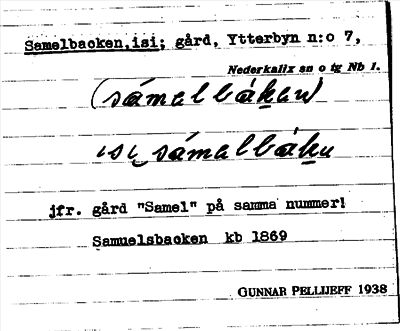 Samelbacken,isi; gård, Ytterbyn n:o 7,
Nederkalix sn o tg Nb l.
(sámalbákan)
isi sámalbáku
jfr. gård "Samel" på samma nummer!
Samuelsbacken kb 1869
GUNNAR PELLIJEFF 1938